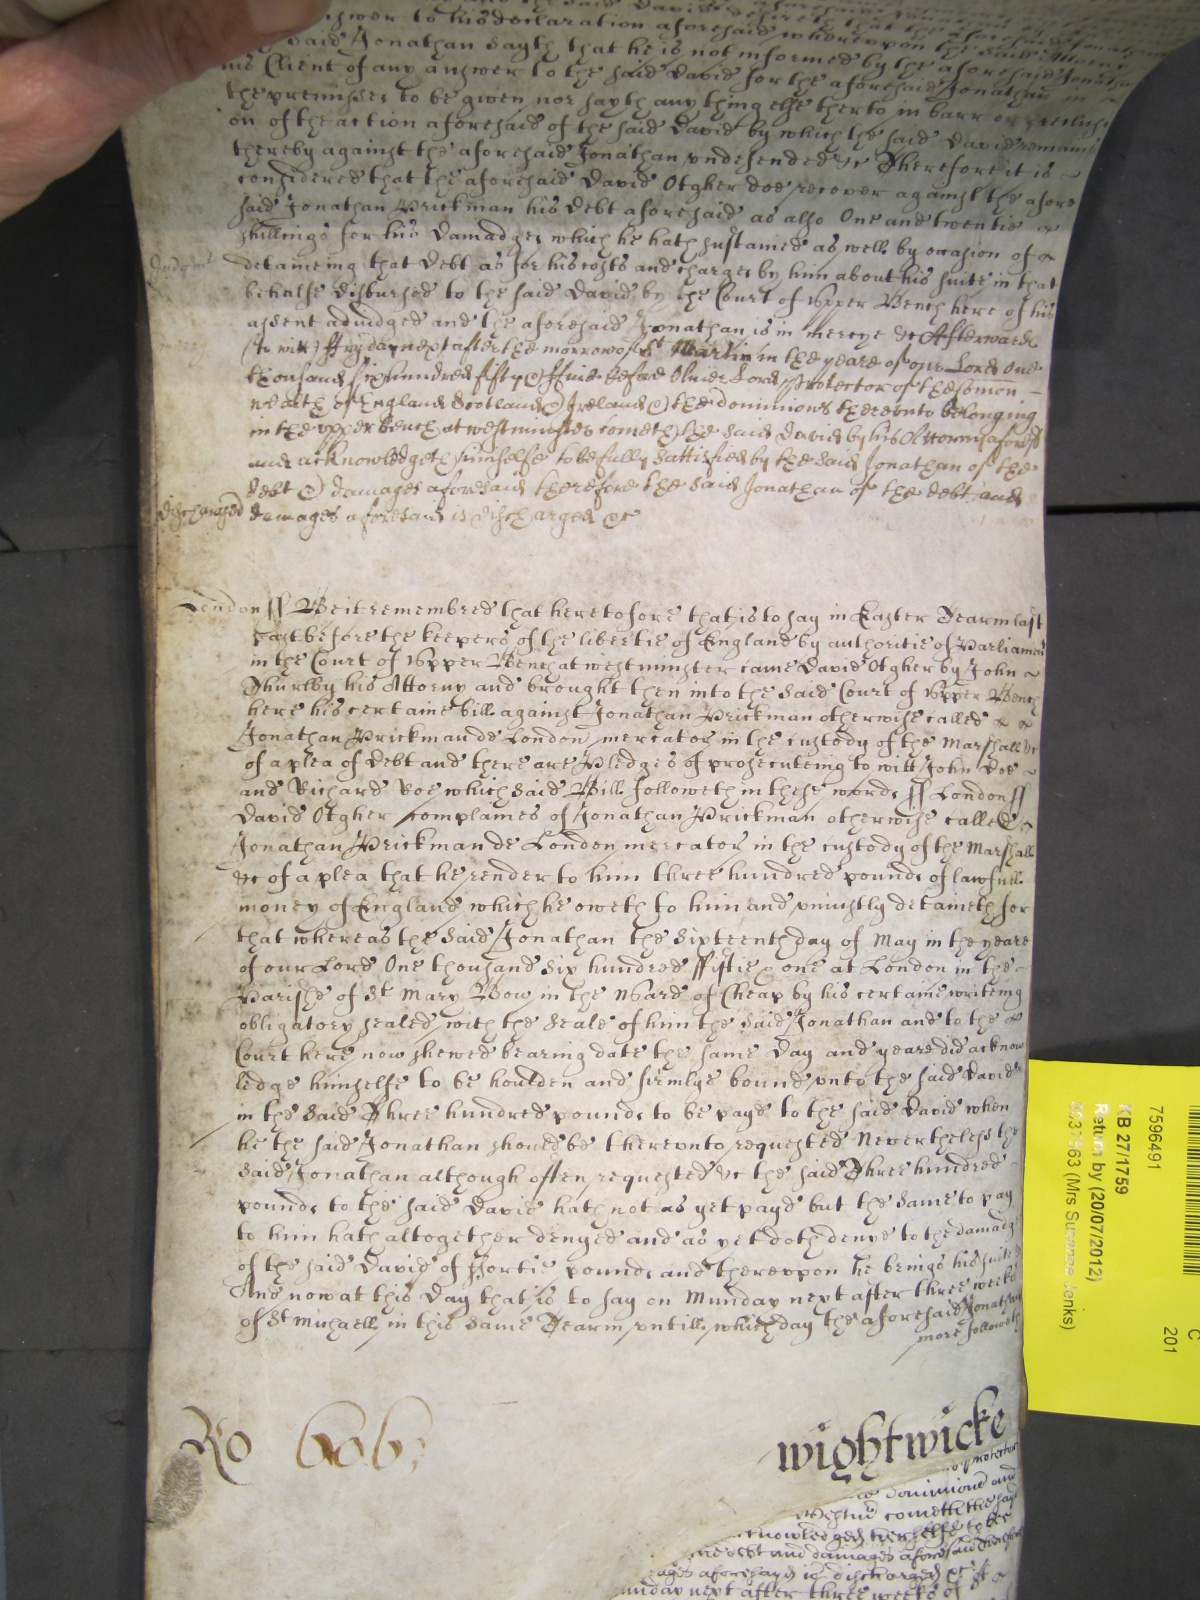 the said David desireth that the aforesaid Jonathan
answer to his declaration aforesaid whereupon the said Attorny
said Jonathan sayth that he is not informed by the aforesaid Jonathan
his Client of any answer to the said David for the aforesaid Jonathan in
the premisses to be given nor sayth any thing else therto in barr or preclusi
on of the action aforesaid of the said David by which the said David remains
thereby against the aforesaid Jonathan undefended &c Therefore it is
considered that the aforesaid David Otgher doe recover against the afore
said Jonathan Prickman his Debt aforesaid as also One and twentie
shillings for his Damadges which he hath sustained as well by occasion of
Judgmt
detaineing that Debt as for his costs and charges by him about his suite in that
behalfe disbursed to the said David by the Court of Upper Bench here of his
assent adiudged and the aforesaid Jonathan is in mercye &c Afterwards
(to witt) ffryday next after the morrow of St Martin in the yeare of our Lord One
thousand six hundred fifty & ffive before Oliver Lord Protector of the Comon
wealth of England Scotland & Ireland & the dominions thereunto belonging
in the upper bench at westminster cometh the said David by his Attorny aforesd
and acknowledgeth himselfe to be fully sattisfied by the said Jonathan of the
debt & damages aforesaid therefore the said Jonathan of the debt and
discharged
damages aforesaid is discharged &c
London ss Be it remembred that heretofore that is to say in Easter Tearm last
past before the keepers of the libertie of England by authoritie of Parliament
in the Court of Upper Bench at westminster came David Otgher by John
Thurlby his Attorny and brought then into the said Court of Upper Bench
here his certaine bill against Jonathan Prickman otherwise called
Jonathan Prickman de London mercator in the custody of the Marshall &c
of a plea of Debt and there are Pledges of prosecuteing to witt John Doe
and Richard Roe which said Bill followeth in these words ss London ss
David Otgher complaines of Jonathan Prickman otherwise called
Jonathan Prickman de London mercator in the custody of the Marshall
&c of a plea that he render to him three hundred pounds of lawfull
money of England which he oweth to him and uniustly detaineth for
that whereas the said Jonathan the sixteenth day of May in the yeare
of our Lord One thousand six hundred ffiftie & one at London in the
Parishe of St Mary Bow in the Ward of Cheap by his certaine writeing
obligatory sealed with the seale of him the said Jonathan and to the
Court here now shewed bearing date the same day and yeare did acknow
ledge himselfe to be houlden and firmlye bound unto the said David
in the said Three hundred pounds to be payd to the said David when
he the said Jonathan should be thereunto requested Nevertheless the
said Jonathan although often requested &c the said Three hundred
pounds to the said David hath not as yet payd but the same to pay
to him hath altogether denyed and as yet doth denye to the damadge
of the said David of ffortie pounds and thereupon he brings his suite
And now at this Day that is to say on Munday next after three weeks
of St Michaell in this same Tearm untill which day the aforesaid Jonathan
more followeth
Ro 606
wightwicke
protector
dominions and
cometh the said
acknowledgeth himselfe to bee
debt and damages aforesaid therefore
aforesayd is discharged &c
munday next after three weeks of St
7596491
KB 27/1759
Return by (20/07/2012)
C
201